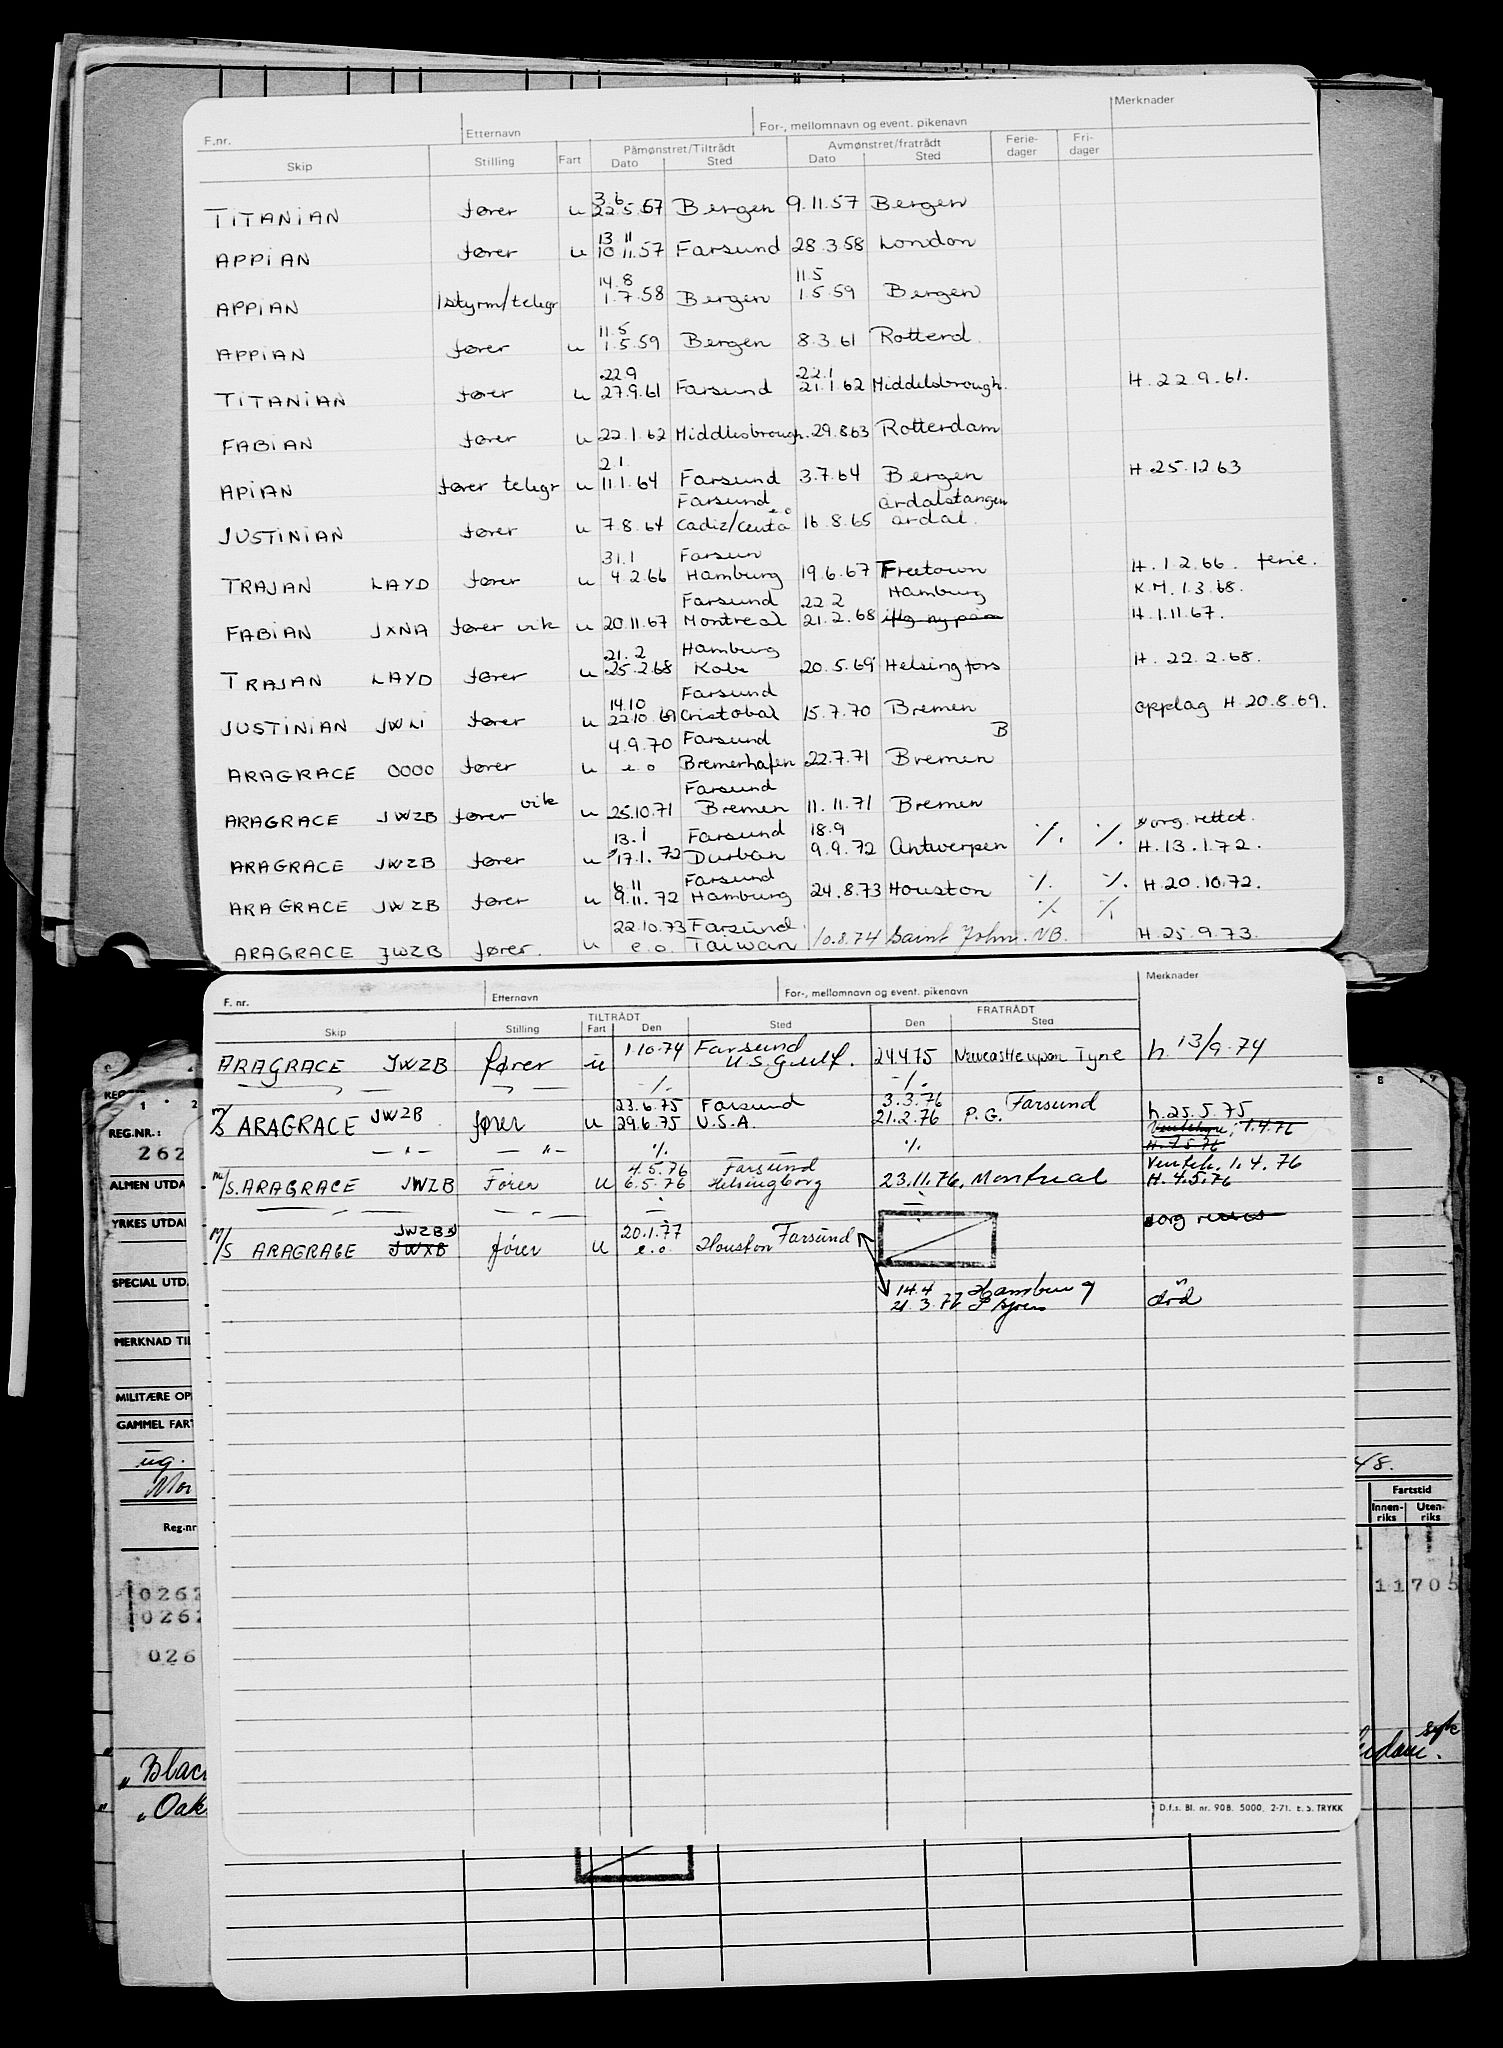 F.nr. Etternavn For-, mellomnavn og event. pikenavn Merknader
Skip Stilling Fart Påmønstret/Tiltrådt Dato Sted Avmønstret/fratrådt Dato Sted Ferie-dager Fri-dager
3.6
TITANIAN fører u 22.5.57 Bergen 9.11.57 Bergen
13 11
APPIAN fører u 10 11.57 Farsund 28.3.58 London
14.8 11.5
APPIAN 1styrm/telegr 1.7.58 Bergen 1.5.59 Bergen
11.5
APPIAN fører u 1.5.59 Bergen 8.3.61 Rotterd.
22.9 22.1
TITANIAN fører u 27.9.61 Farsund 21.1.62 Middelsbrough. H. 22.9.61.
FABIAN fører u 22.1.62 Middlesbrough. 29.8.63 Rotterdam
2.1
APIAN fører telegr u 11.1.64 Farsund 3.7.64 Bergen H. 25.12 63
Farsund e.o Årdalstangen
JUSTINIAN fører u 7.8.64 Cadiz/Ceuta 16.8.65 Årdal.
31.1 Farsun
TRAJAN LAYD fører u 4.2.66 Hamburg 19.6.67 Freetown H. 1.2.66. ferie.
Farsund 22.2 Hamburg K.M. 1.3.68.
FABIAN JXNA fører vik u 20.11.67 Montreal 21.2.68 H. 1.11.67.
21.2 Hamburg
TRAJAN LAYD fører u 25.2.68 Kobe 20.5.69 Helsingfors H. 22.2.68.
14.10 Farsund
JUSTINIAN JWLI fører u 22.10.69 Cristobal 15.7.70 Bremen opplag H. 20.8.69.
4.9.70 Farsund B
ARAGRACE 0000 fører u e.o Bremerhafen 22.7.71 Bremen
Farsund
ARAGRACE JWZB fører vik u 25.10.71 Bremen 11.11.71 Bremen
13.1 Farsund 18.9 org. rettet.
ARAGRACE JWZB fører u 17.1.72 Durban 9.9.72 Antwerpen ./. ./. H. 13.1.72.
6.11 Farsund
ARAGRACE JWZB fører u 9.11.72 Hamburg 24.8.73 Houston ./. ./. H. 20.10.72.
22.10.73 Farsund ./. ./.
ARAGRACE JWZB fører. u e.o. Taiwan 10.8.74 Saint John. NB. H. 25.9.73.
F. nr. Etternavn For-, mellomnavn og event. pikenavn Merknader
Skip Stilling TILTRÅDT Fart Den Sted FRATRÅDT Den Sted
1.10.74 Farsund
ARAGRACE JWZB fører u U.S. Gulf. 24.4.75 Newcastle upon Tyne h. 13/9.74
./. ./.
23.6.75 Farsund 3.3.76 Farsund
M/S ARAGRACE JWZB fører u 29.6.75 U.S.A. 21.2.76 P.G. h. 25.5.75
1.4.76
— " — — " — ./. ./. H. 7.5.76
4.5.76 Farsund Venteh. 1.4.76
M/S. ARAGRACE JWZB Fører u 6.5.76 Helsingborg 23.11.76. Montreal H. 4.5.76
20.1.77 org
M/S ARAGRACE JWZB JWXB fører u e.o. Houston Farsund
14.4 Hamburg
21.3.77 død
REG.NR.:
262
ALMEN UTDA
YRKES UTDA
SPECIAL UTD.
MERKNAD TIL
MILITÆRE OP
GAMMEL FART
ug. 48.
Mor
Reg.nr Fartstid
Innen-riks Uten-riks
0262 11705
0262
026
„Blac syk
„Oak
D.f.s. Bl. nr. 90B. 5000. 2-71. E. S. TRYKK